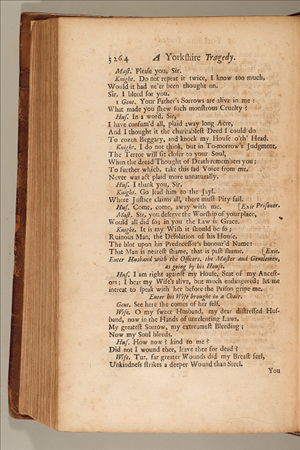 3264 A Yorkshire Tragedy.
Mast. Please you, Sir.
Knight. Do not repeat it twice, I know too much,
Would it had ne'er been thought on.
Sir, I bleed for you.
1 Gent. Your Father's Sorrows are alive in me:
What made you shew such monstrous Cruelty?
Hus. In a word, Sir,
I have consum'd all, plaid away long Acre,
And I thought it the charitablest Deed I could do
To cozen Beggary, and knock my House o'th' Head.
Knight. I do not think, but in To-morrow's Judgment,
The Terror will sit closer to your Soul,
When the dread Thought of Death remembers you;
To further which, take this sad Voice from me,
Never was act plaid more unnaturally.
Hus. I thank you, Sir.
Knight. Go lead him to the Jayl,
Where Justice claims all, there must Pity fail.
Hus. Come, come, away with me. [Exit Prisoner.
Mast. Sir, you deserve the Worship of your place,
Would all did so; in you the Law is Grace.
Knight. It is my Wish it should be so;
Ruinous Man; the Desolation of his House,
The blot upon his Predecessor's honour'd Name:
That Man is nearest shame, that is past shame. [Exit.
Enter Husband with the Officers, the Master and Gentlemen,
as going by his House.
Hus. I am right against my House, Seat of my Ancest-
ors; I hear my Wife's alive, but much endangered; let me
intreat to speak with her before the Prison gripe me.
Enter his Wife brought in a Chair.
Gent. See here she comes of her self.
Wife. O my sweet Husband, my dear distressed Hus-
band, now in the Hands of unrelenting Laws,
My greatest Sorrow, my extreamest Bleeding;
Now my Soul bleeds.
Hus. How now? kind to me?
Did not I wound thee, leave thee for dead?
Wife. Tut, far greater Wounds did my Breast feel,
Unkindness strikes a deeper Wound than Steel.
You